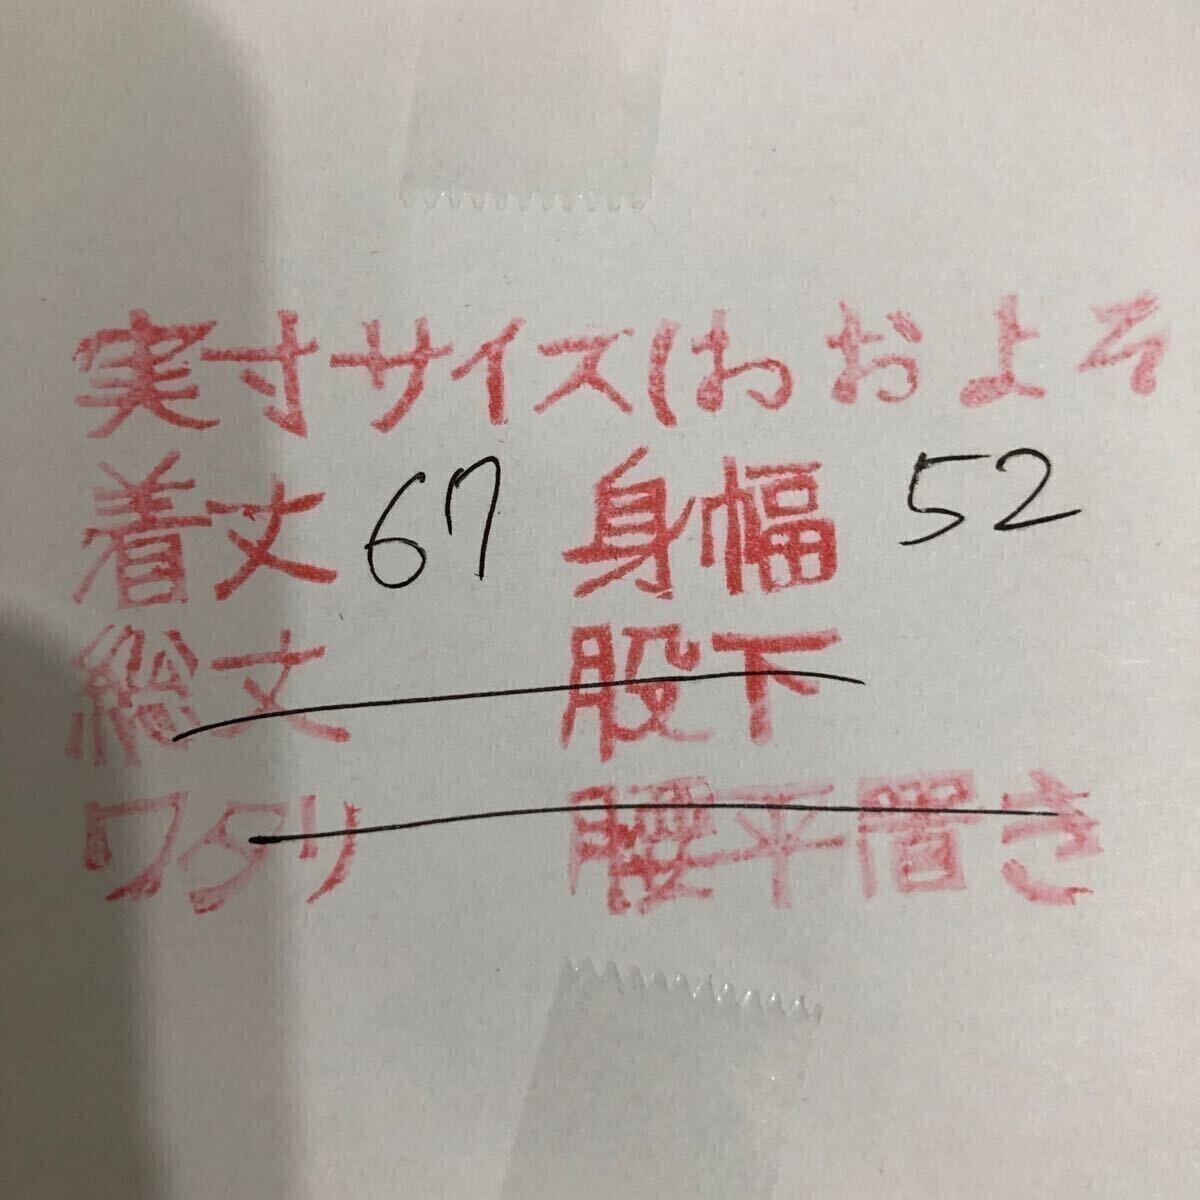 実寸サイズ(おおよそ
着丈 67 身幅 52
総丈 股下
ワタリ 腰平置き